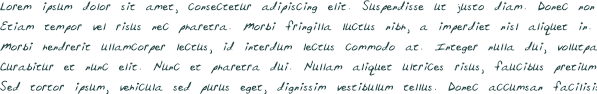 Lorem ipsum dolor sit amet, consectetur adipiscing elit. Suspendisse ut justo diam. Donec non
Etiam tempor vel risus nec pharetra. Morbi fringilla luctus nibh, a imperdiet nisl aliquet in.
Morbi hendrerit ullamcorper lectus, id interdum lectus commodo at. Integer nulla dui, volutpa
Curabitur et nunc elit. Nunc et pharetra dui. Nullam aliquet ultrices risus, faucibus pretium
Sed tortor ipsum, vehicula sed purus eget, dignissim vestibulum tellus. Donec accumsan facilisi